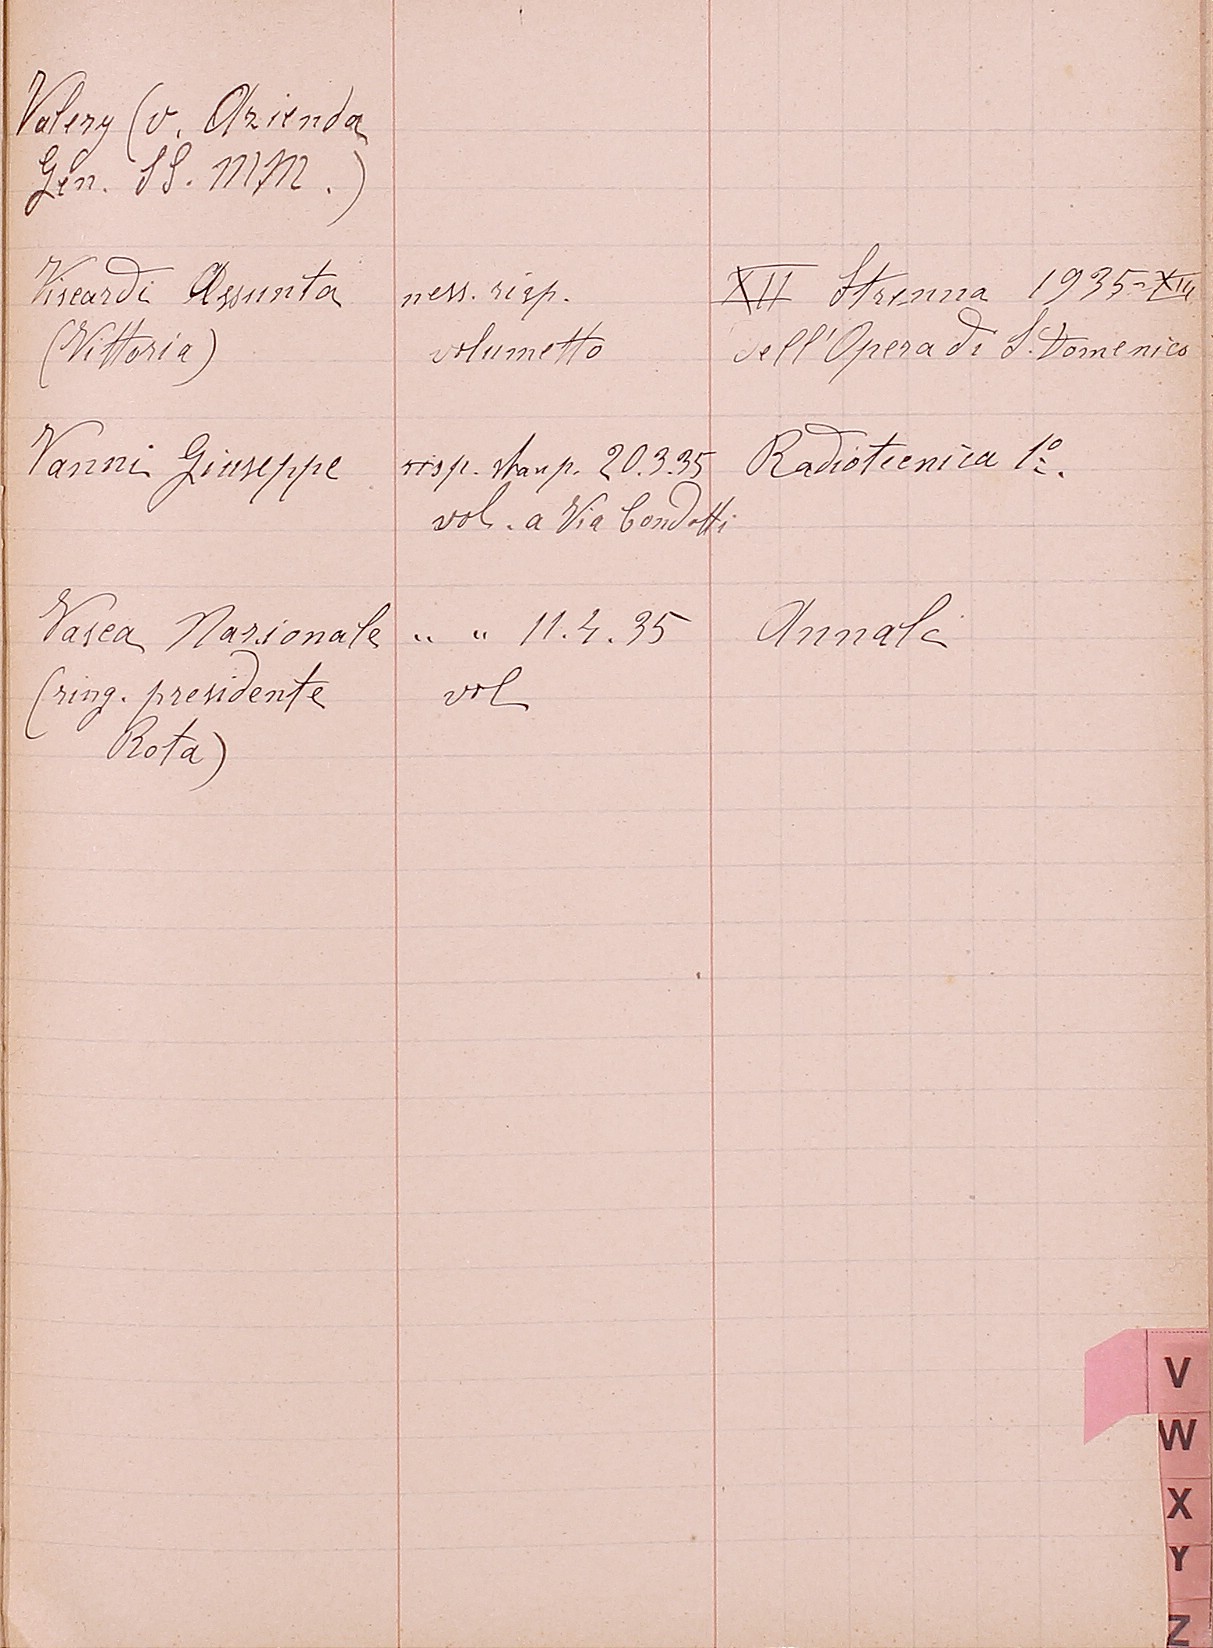 Valery (v. Azienda
Gen. SS. MM.)
Viscardi Assunta
(Vittoria)
ness. risp.
volumetto
XII Strenna 1935-XIII
dell'Opera di S. Domenico
Vanni Giuseppe
risp. stamp. 20.3.35
vol. a Via Condotti
Radiotecnica 1º.
Vasca Nazionale
(ring. presidente
Rota)
" " 11.4.35
vol
Annali
V
W
X
Y
Z